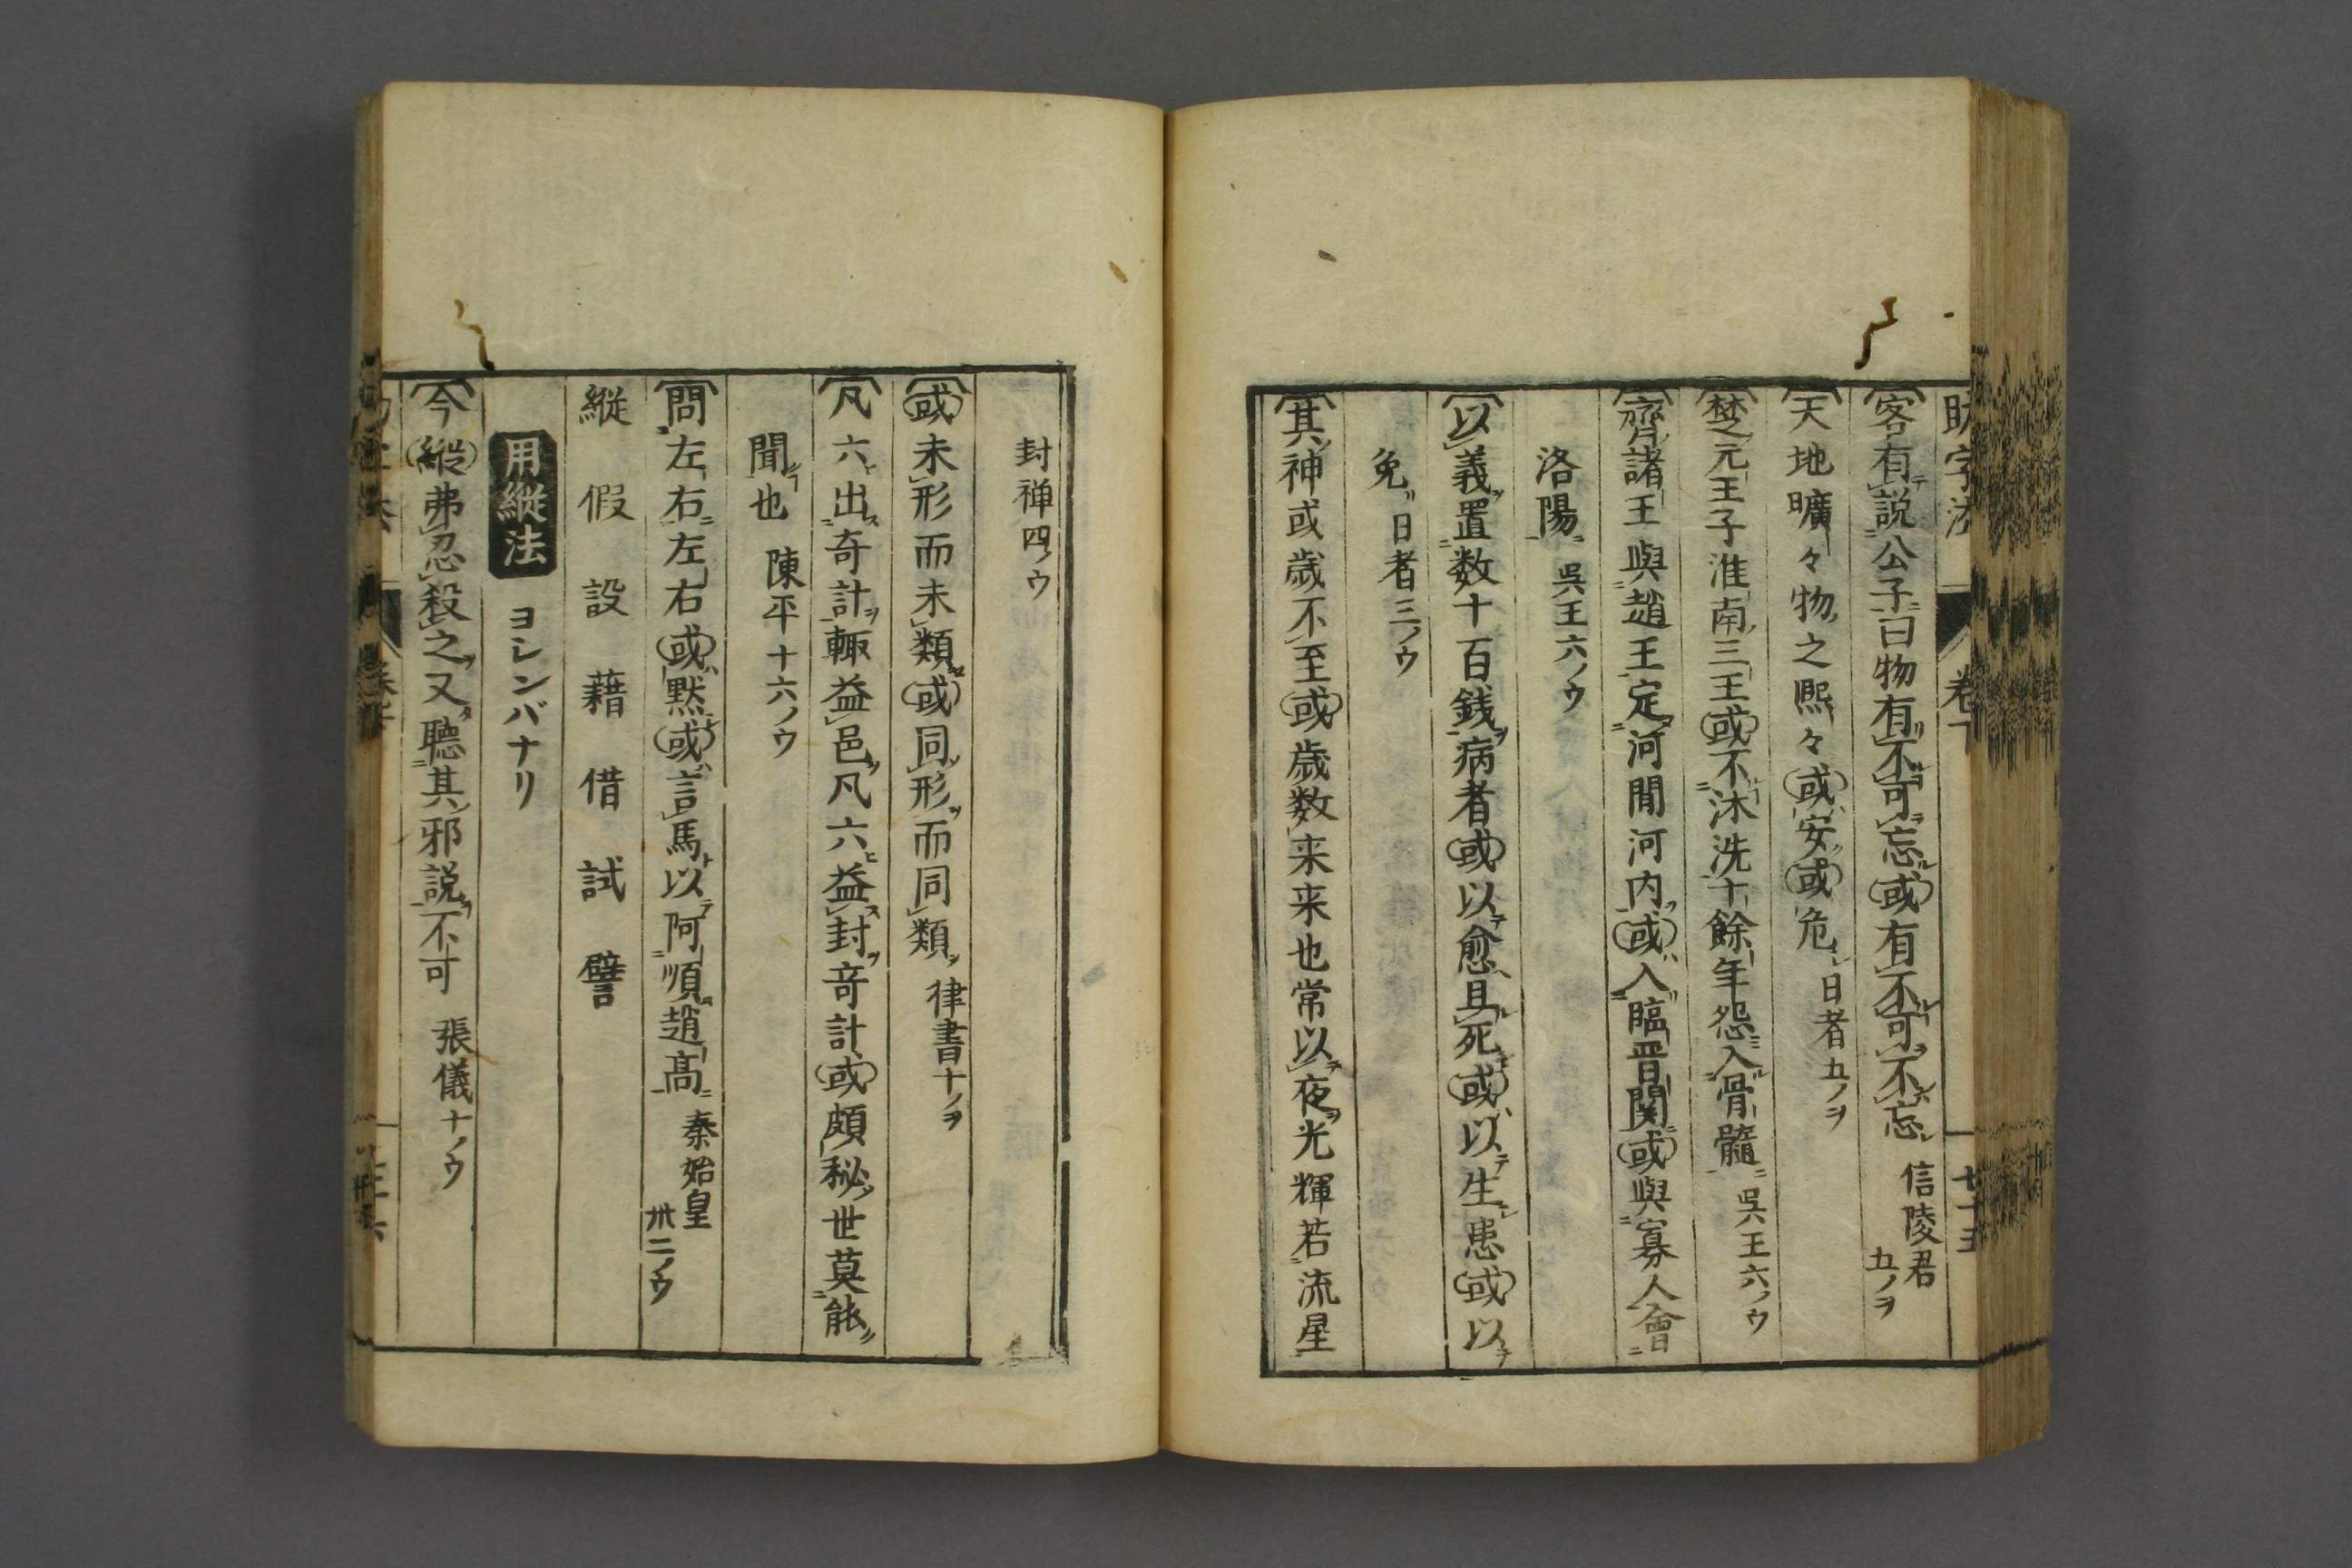 助字法 卷下 七十五
客有説公子曰物有不可忘或有不可不忘 信陵君五ノヲ
天地曠々物之熙々或安或危 日者五ノヲ
楚元王子淮南三王或不沐洗十餘年怨入骨髓 呉王六ノウ
齊諸王與趙王定河間河内或入臨晋関或與寡人會
洛陽 呉王六ノウ
以義置数十百銭病者或以愈且死或以生患或以
免 日者三ノウ
其神或歳不至或歳数来来也常以夜光輝若流星
封禅四ノウ
或未形而未類或同形而同類 律書十ノヲ
凡六出奇計輙益邑凡六益封竒計或頗秘世莫能
聞也 陳平十六ノウ
問左右左右或黙或言馬以阿順趙高 秦始皇卅二ノウ
縦 假 設 藉 借 試 譬
用縦法 ヨレンバナリ
今縦弗忍殺之又聴其邪説不可 張儀十ノウ